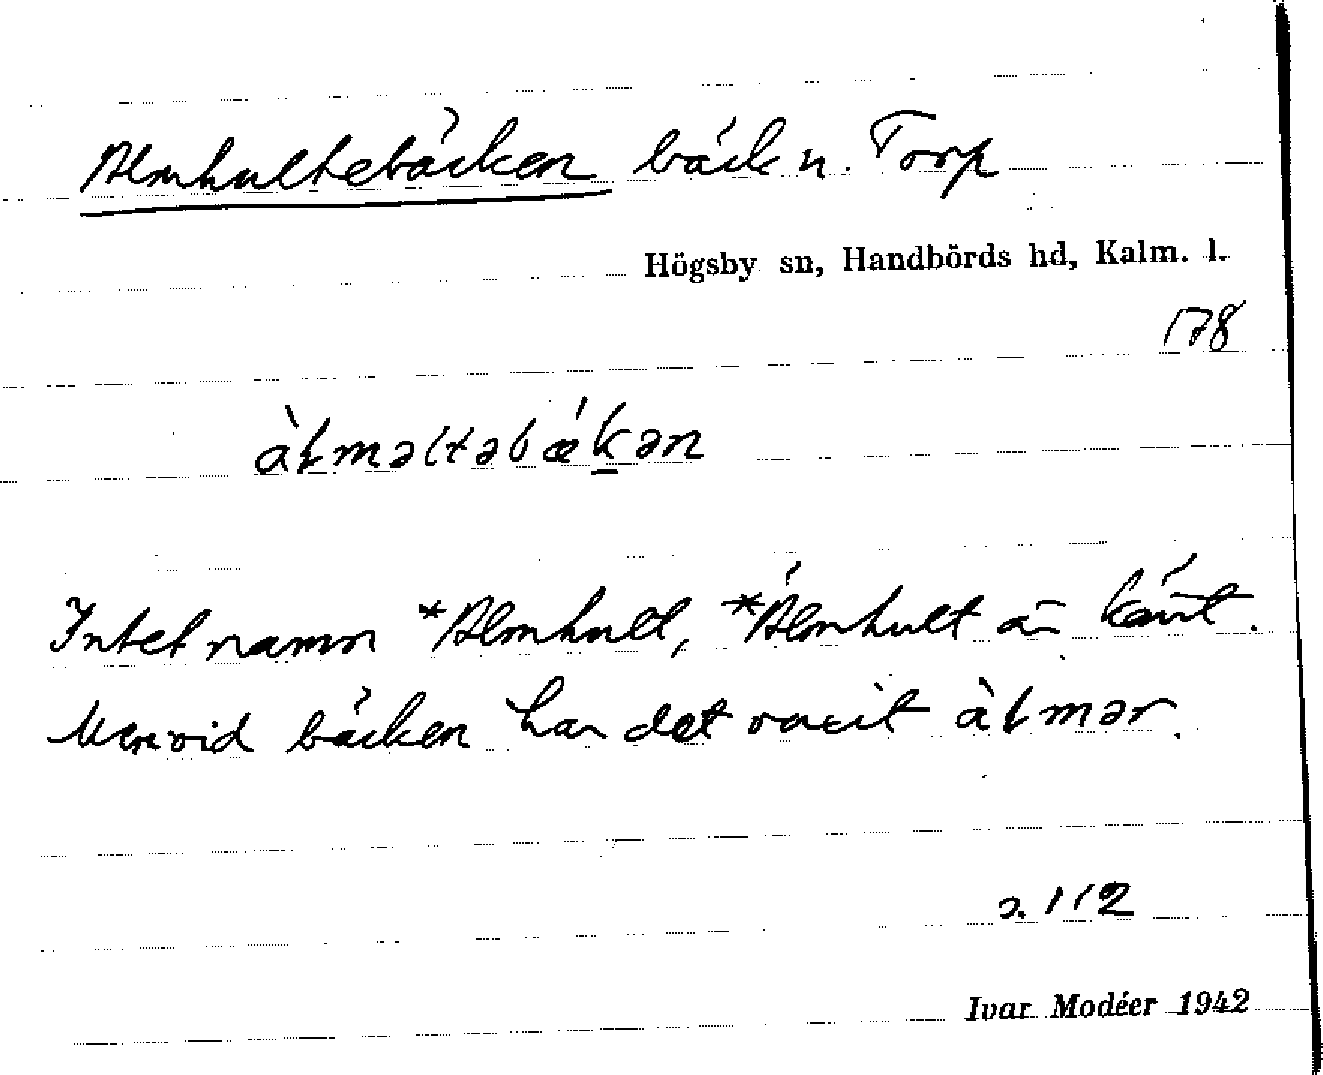 Almhultebäcken bäck n. Torp
Högsby sn, Handbörds hd, Kalm. l.
178
àlməltəbǽkən
Intet namn *Almhult, *Älmhult är känt.
Men vid bäcken har det vaxit àlmər.
s. 112
Ivar Modéer 1942